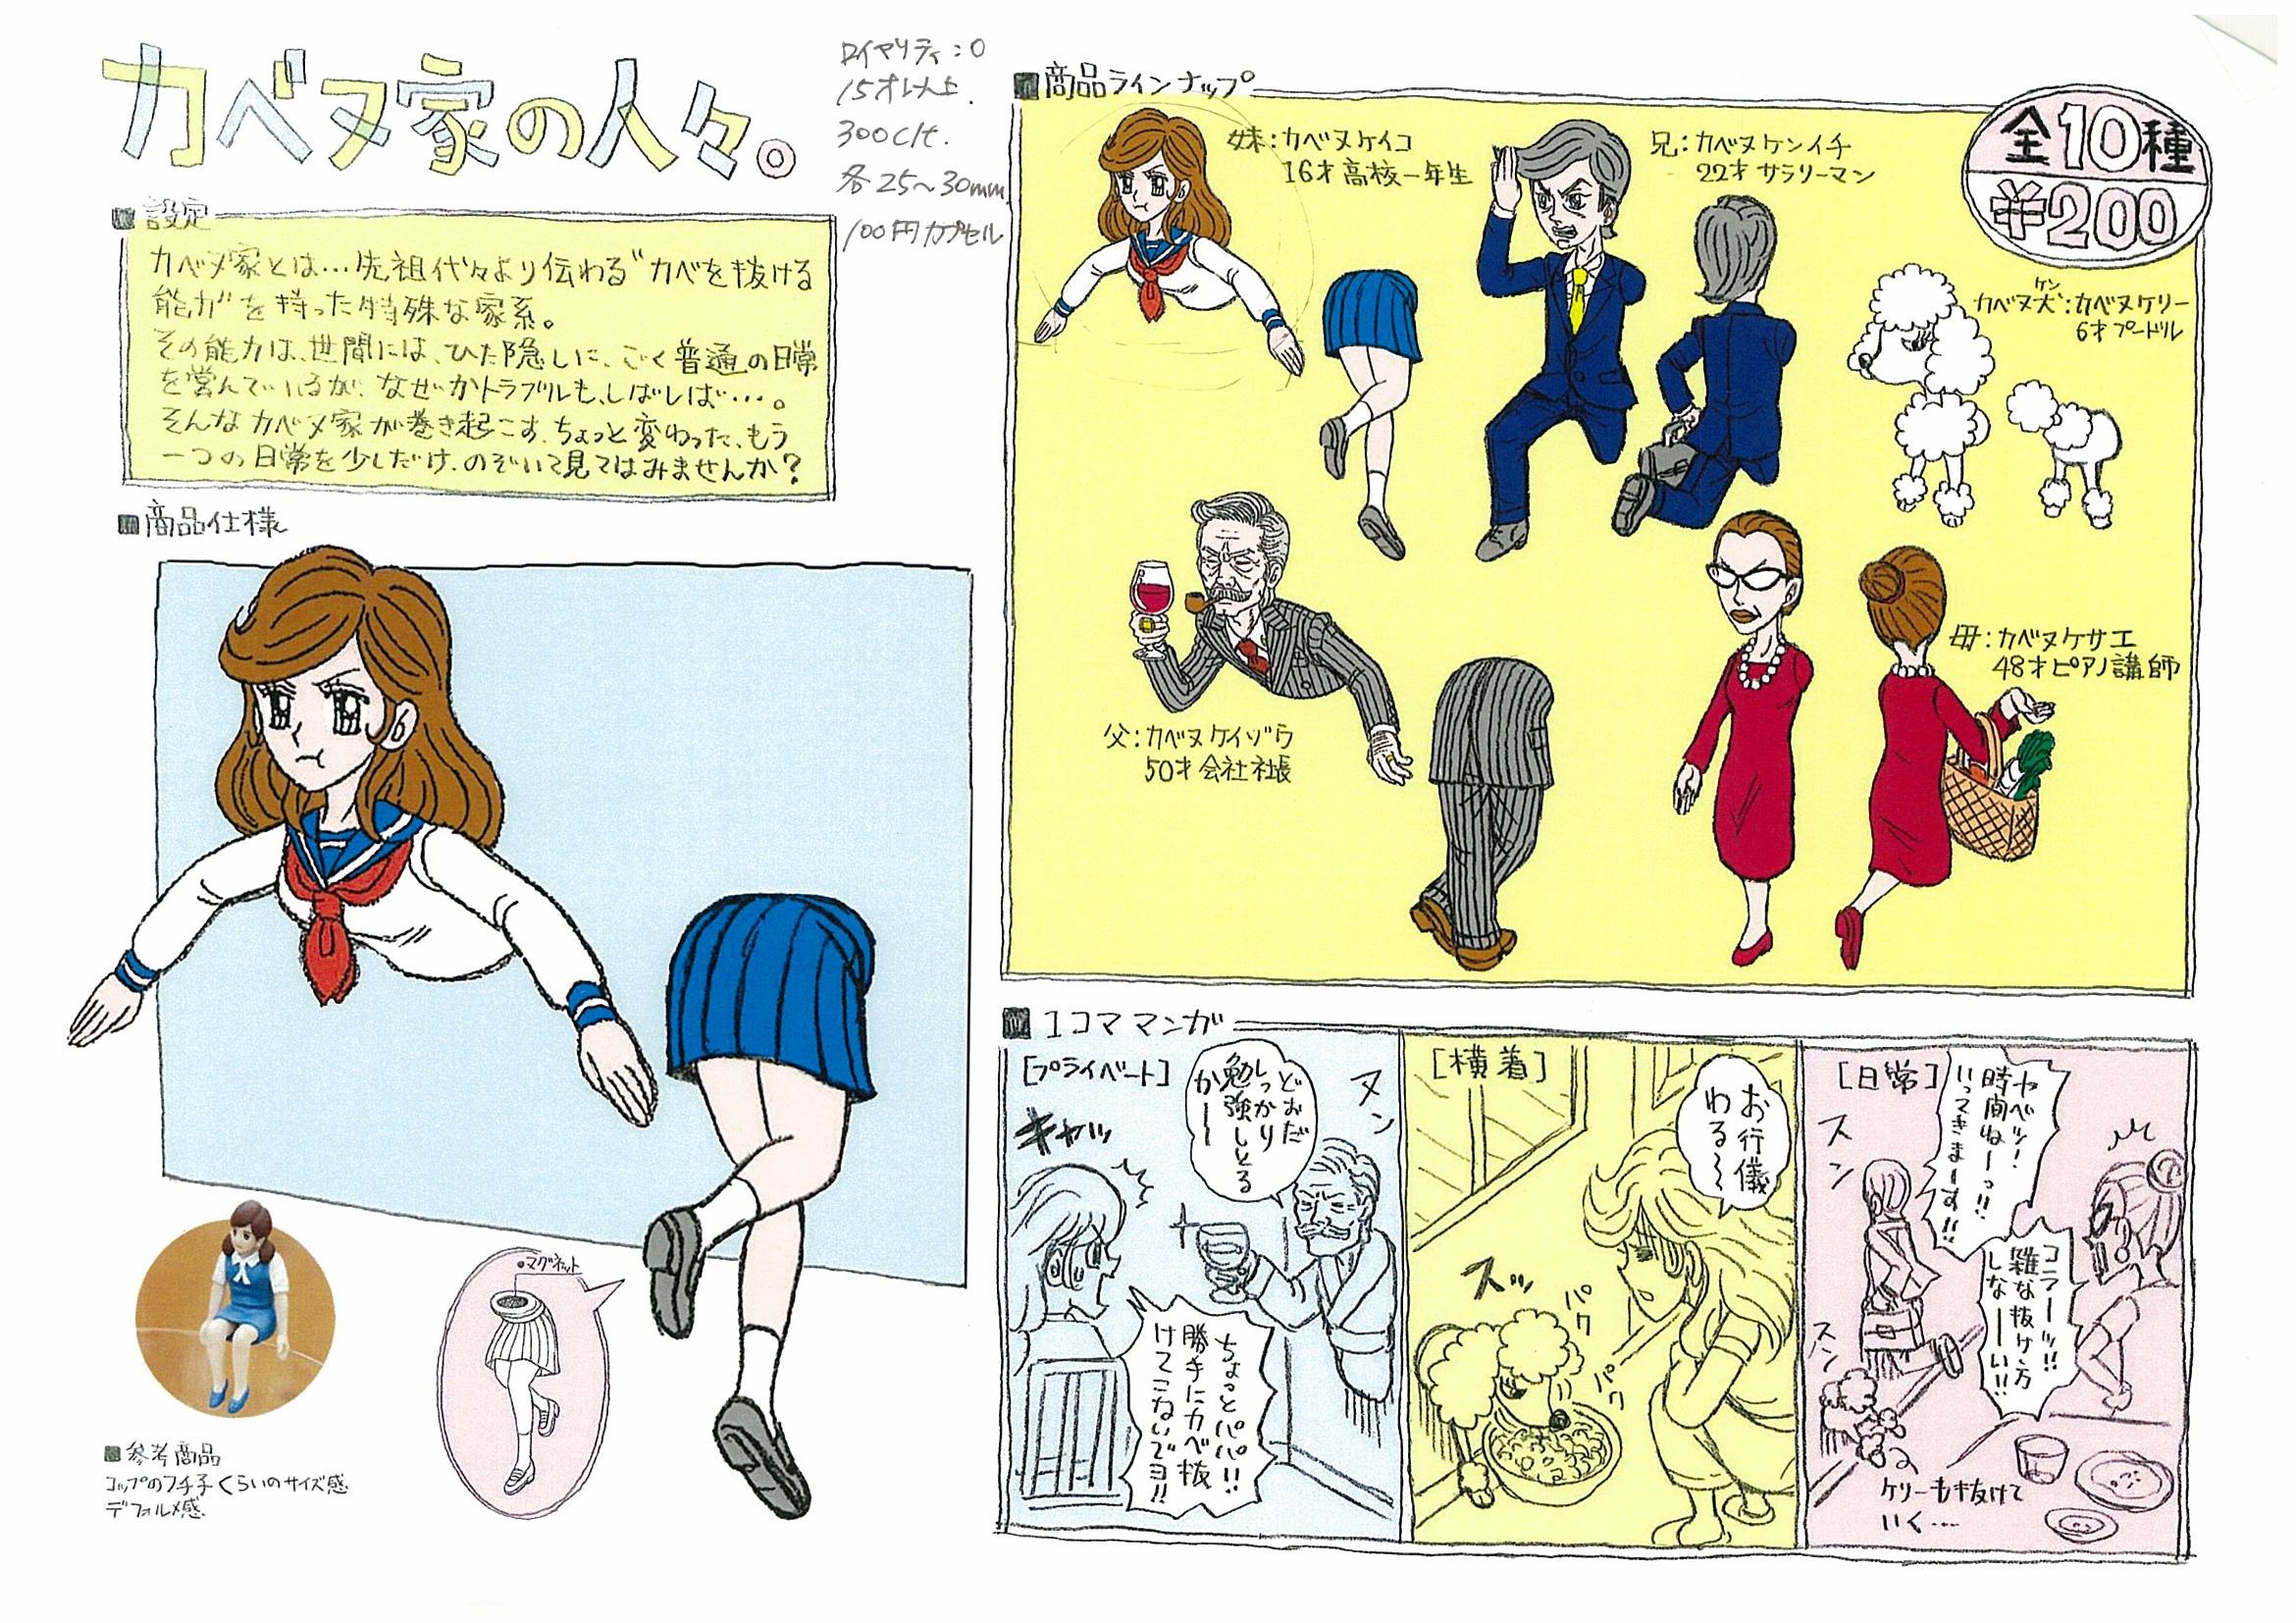 カベヌ家の人々。
ロイヤリティ：0
15才以上.
300c/t.
各25〜30mm
100円カプセル
■設定
カベヌ家とは…先祖代々より伝わる“カベを抜ける
能力”を持った特殊な家系。
その能力は、世間には、ひた隠しに、ごく普通の日常
を営んでいるが、なぜかトラブルも、しばしば…。
そんなカベヌ家が巻き起こす、ちょっと変わった、もう
一つの日常を少しだけ、のぞいて見てはみませんか？
■商品仕様
●マグネット
■参考商品
コップのフチ子くらいのサイズ感
デフォルメ感
■商品ラインナップ
全10種
¥200
妹：カベヌケイコ
16才高校一年生
兄：カベヌケンイチ
22才サラリーマン
ケン
カベヌ犬：カベヌケリー
6才プードル
父：カベヌケイゾウ
50才会社社長
母：カベヌケサエ
48才ピアノ講師
■1コママンガ
[プライベート]
ヌン
どおだ
しっかり
勉強しとる
かー
キャッ
ちょっとパパ!!
勝手にカベ抜
けてこないでヨ!!
[横着]
お行儀
わる〜
ズッ
パク
パク
[日常]
ヤベッ!
時間ねーっ!!
いってきまーす!!
スン
コラーッ!!
雑な抜け方
しなーい!!
スン
ケリーも抜けて
いく…